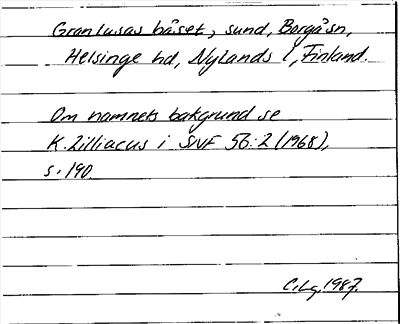 Granlusas båset, sund, Borgå sn,
Helsinge hd, Nylands l, Finland.
Om namnets bakgrund se
K. Zilliacus i SNF 56:2 (1968),
s. 190
C.Lg. 1987.